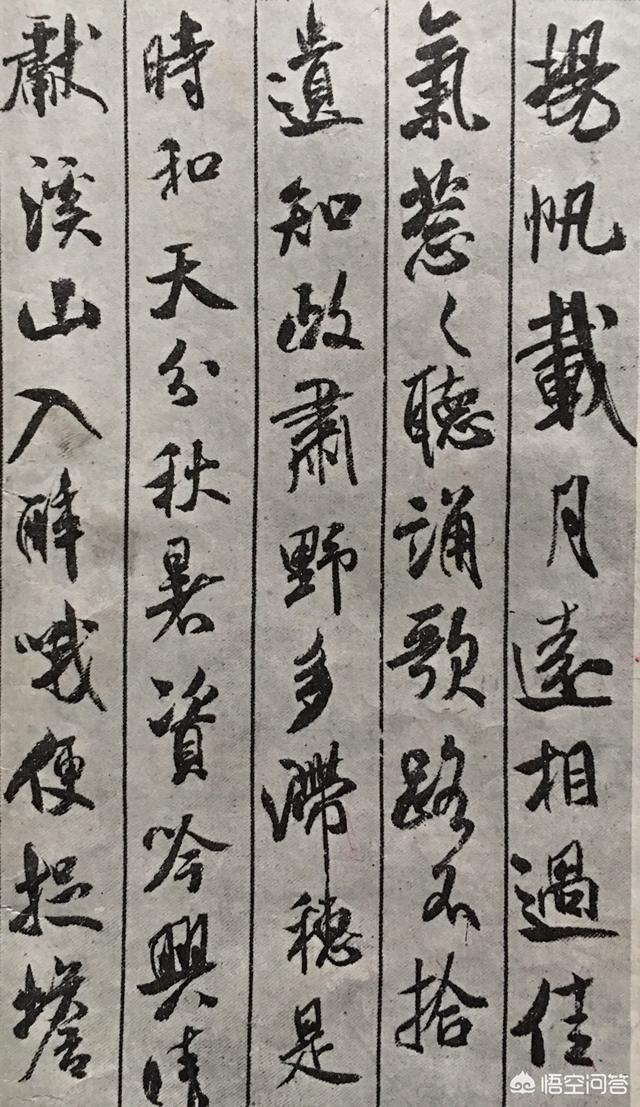 揚帆載月遠相過佳
氣葱々聽誦歌路不拾
遺知政肅野多滯穗是
時和天分秋暑資吟興晴
獻溪山入醉哦便捉蟾
悟空问答